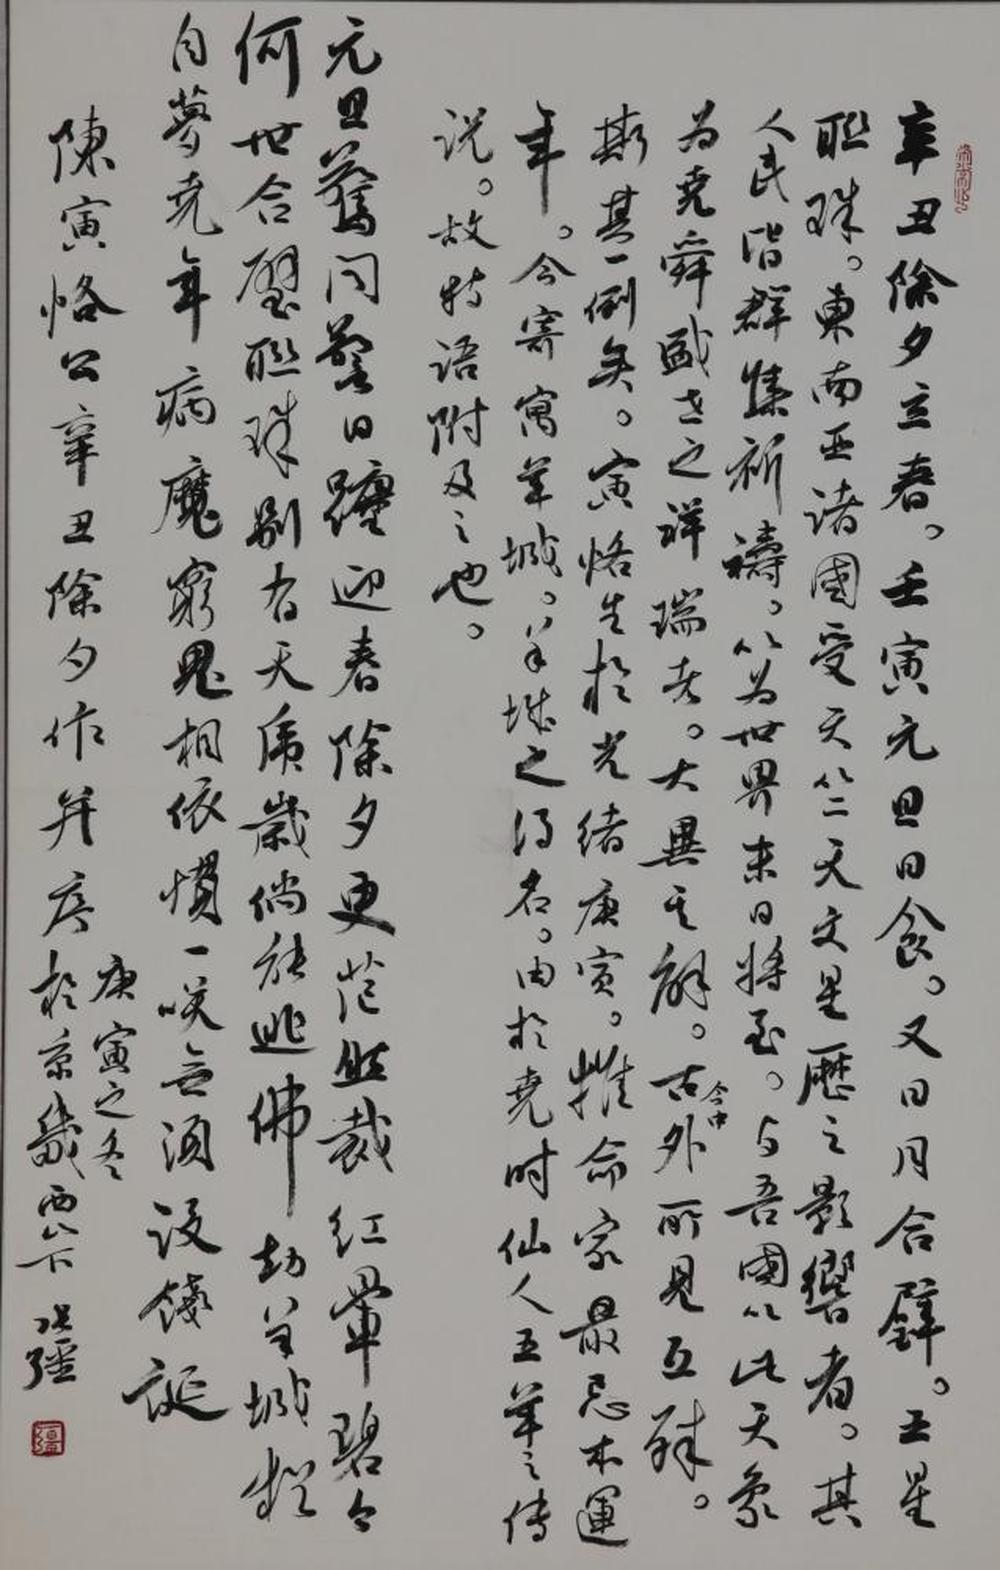 辛丑除夕立春。壬寅元旦日食。又日月合璧。五星
联珠。東南亚诸國受天竺天文星歷之影響者。其
人民皆群集祈禱。以为世界末日将至。与吾國以此天象
为尧舜盛世之祥瑞者。大異其解。古今中外所見互殊。
斯其一例矣。寅恪生於光绪庚寅。推命家最忌木運
年。今寄寓羊城。羊城之得名。由於尧时仙人五羊之传
说。故特语附及之也。
元旦驚闻警日躔迎春除夕更茫然裁红晕碧今
何世合璧联珠别有天虎歲倘能逃佛劫羊城犹
自夢尧年病魔窮鬼相依慣一笑无须设餞诞
陳寅恪公辛丑除夕作并序
庚寅之冬
於京畿西山下 张疆